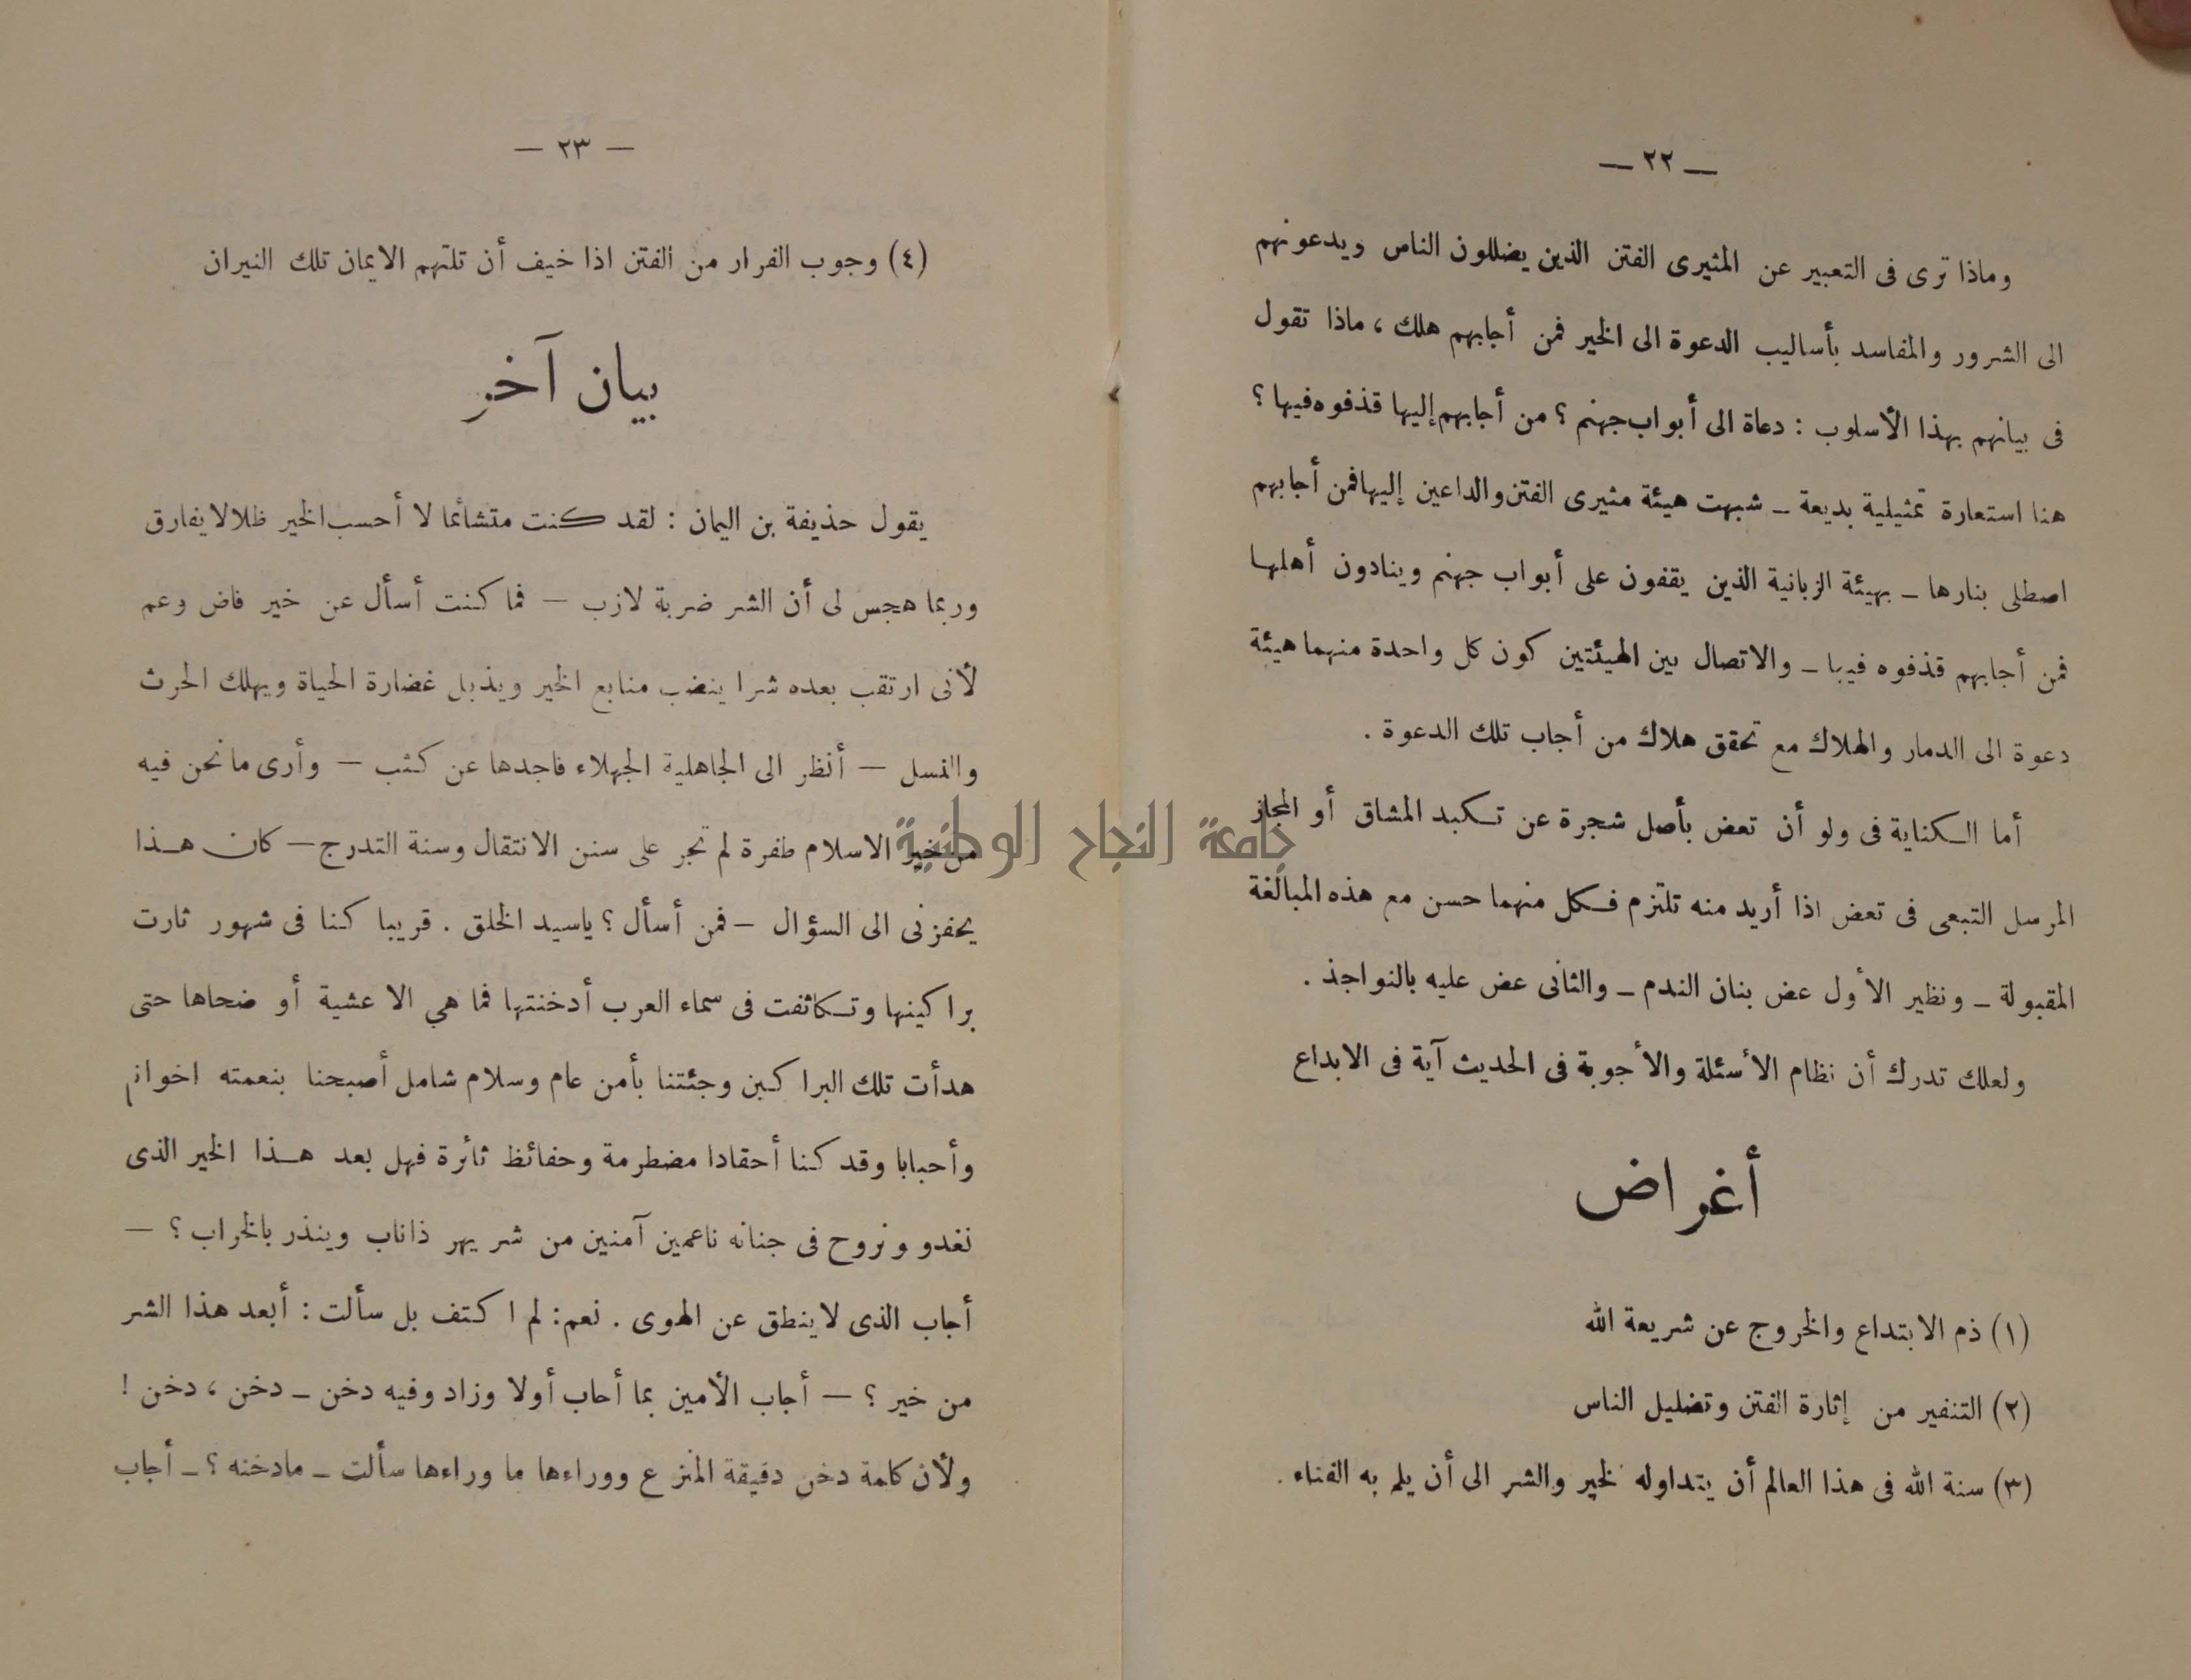 — ٢٢ —
وماذا ترى فى التعبير عن المثيرى الفتن الذين يضللون الناس ويدعونهم
الى الشرور والمفاسد بأساليب الدعوة الى الخير فمن أجابهم هلك ، ماذا تقول
فى بيانهم بهذا الأسلوب : دعاة الى أبواب جهنم ؟ من أجابهم إليها قذفوه فيها ؟
هنا استعارة تمثيلية بديعة ـ شبهت هيئة مثيرى الفتن والداعين إليها فمن أجابهم
اصطلى بنارها ـ بهيئة الزبانية الذين يقفون على أبواب جهنم وينادون أهلها
فمن أجابهم قذفوه فيها ـ والاتصال بين الهيئتين كون كل واحدة منهما هيئة
دعوة الى الدمار والهلاك مع تحقق هلاك من أجاب تلك الدعوة .
أما الكناية فى ولو أن تعض بأصل شجرة عن تكبد المشاق أو المجاز
المرسل التبعى فى تعض اذا أريد منه تلتزم فكل منهما حسن مع هذه المبالغة
المقبولة ـ ونظير الأول عض بنان الندم ـ والثانى عض عليه بالنواجذ .
ولعلك تدرك أن نظام الأسئلة والأجوبة فى الحديث آية فى الابداع
أغراض
(١) ذم الابتداع والخروج عن شريعة الله
(٢) التنفير من إثارة الفتن وتضليل الناس
(٣) سنة الله فى هذا العالم أن يتداوله لخير والشر الى أن يلم به الفناء .
— ٢٣ —
(٤) وجوب الفرار من الفتن اذا خيف أن تلتهم الايمان تلك النيران
بيان آخر
يقول حذيفة بن اليمان : لقد كنت متشائما لا أحسب الخير ظلا لا يفارق
وربما هجس لى أن الشر ضربة لازب — فما كنت أسأل عن خير فاض وعم
لأنى ارتقب بعده شرا ينضب منابع الخير ويذبل غضارة الحياة ويهلك الحرث
والنسل — أنظر الى الجاهلية الجهلاء فاجدها عن كثب — وأرى ما نحن فيه
من خير الاسلام طفرة لم تجر على سنن الانتقال وسنة التدرج — كان هذا
يحفزنى الى السؤال — فمن أسأل ؟ ياسيد الخلق . قريبا كنا فى شهور ثارت
براكينها وتكاثفت فى سماء العرب أدخنتها فما هي الا عشية أو ضحاها حتى
هدأت تلك البراكين وجئتنا بأمن عام وسلام شامل أصبحنا بنعمته اخوانا
وأحبابا وقد كنا أحقادا مضطرمة وحفائظ ثائرة فهل بعد هذا الخير الذى
نغدو ونروح فى جنانه ناعمين آمنين من شر يهر ذاناب وينذر بالخراب ؟ —
أجاب الذى لا ينطق عن الهوى . نعم : لم اكتف بل سألت : أبعد هذا الشر
من خير ؟ — أجاب الأمين بما أجاب أولا وزاد وفيه دخن ـ دخن ، دخن !
ولأن كلمة دخن دقيقة المنزع ووراءها ما وراءها سألت ـ مادخنه ؟ ـ أجاب
جامعة النجاح الوطنية